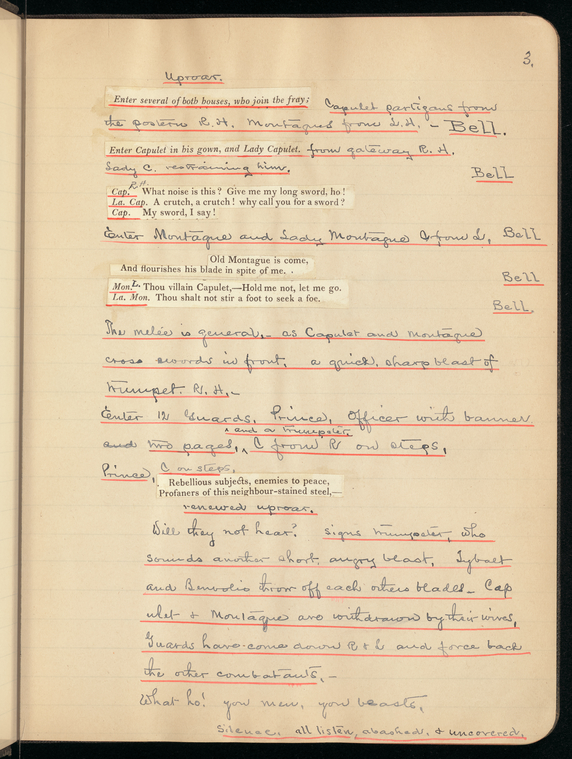 3.
Uproar.
Enter several of both houses, who join the fray; Capulet partizans from
the postern R.H. Montagues from L.H. – Bell.
Enter Capulet in his gown, and Lady Capulet. from gateway R.H.
Lady C. restraining him. Bell
R.H.
Cap. What noise is this? Give me my long sword, ho!
La. Cap. A crutch, a crutch! why call you for a sword?
Cap. My sword, I say!
Enter Montague and Lady Montague from L. Bell
Old Montague is come,
And flourishes his blade in spite of me. Bell
Mon. L. Thou villain Capulet,—Hold me not, let me go.
La. Mon. Thou shalt not stir a foot to seek a foe. Bell.
The melée is general,– as Capulet and Montague
cross swords in front, a quick, sharp blast of
trumpet. R.H.–
Enter 12 Guards, Prince, Officer with banner
and a trumpeter.
and two pages, C from R on steps,
Prince, C on steps.
Rebellious subjects, enemies to peace,
Profaners of this neighbour-stained steel,—
renewed uproar.
Will they not hear? signs trumpeter, who
sounds another short, angry blast. Tybalt
and Benvolio throw off each others blades– Cap
ulet + Montague are withdrawn by their wives,
Guards have come down R + L and force back
the other combatants,–
What ho! you men, you beasts,
Silence. all listen, abashed, + uncovered.